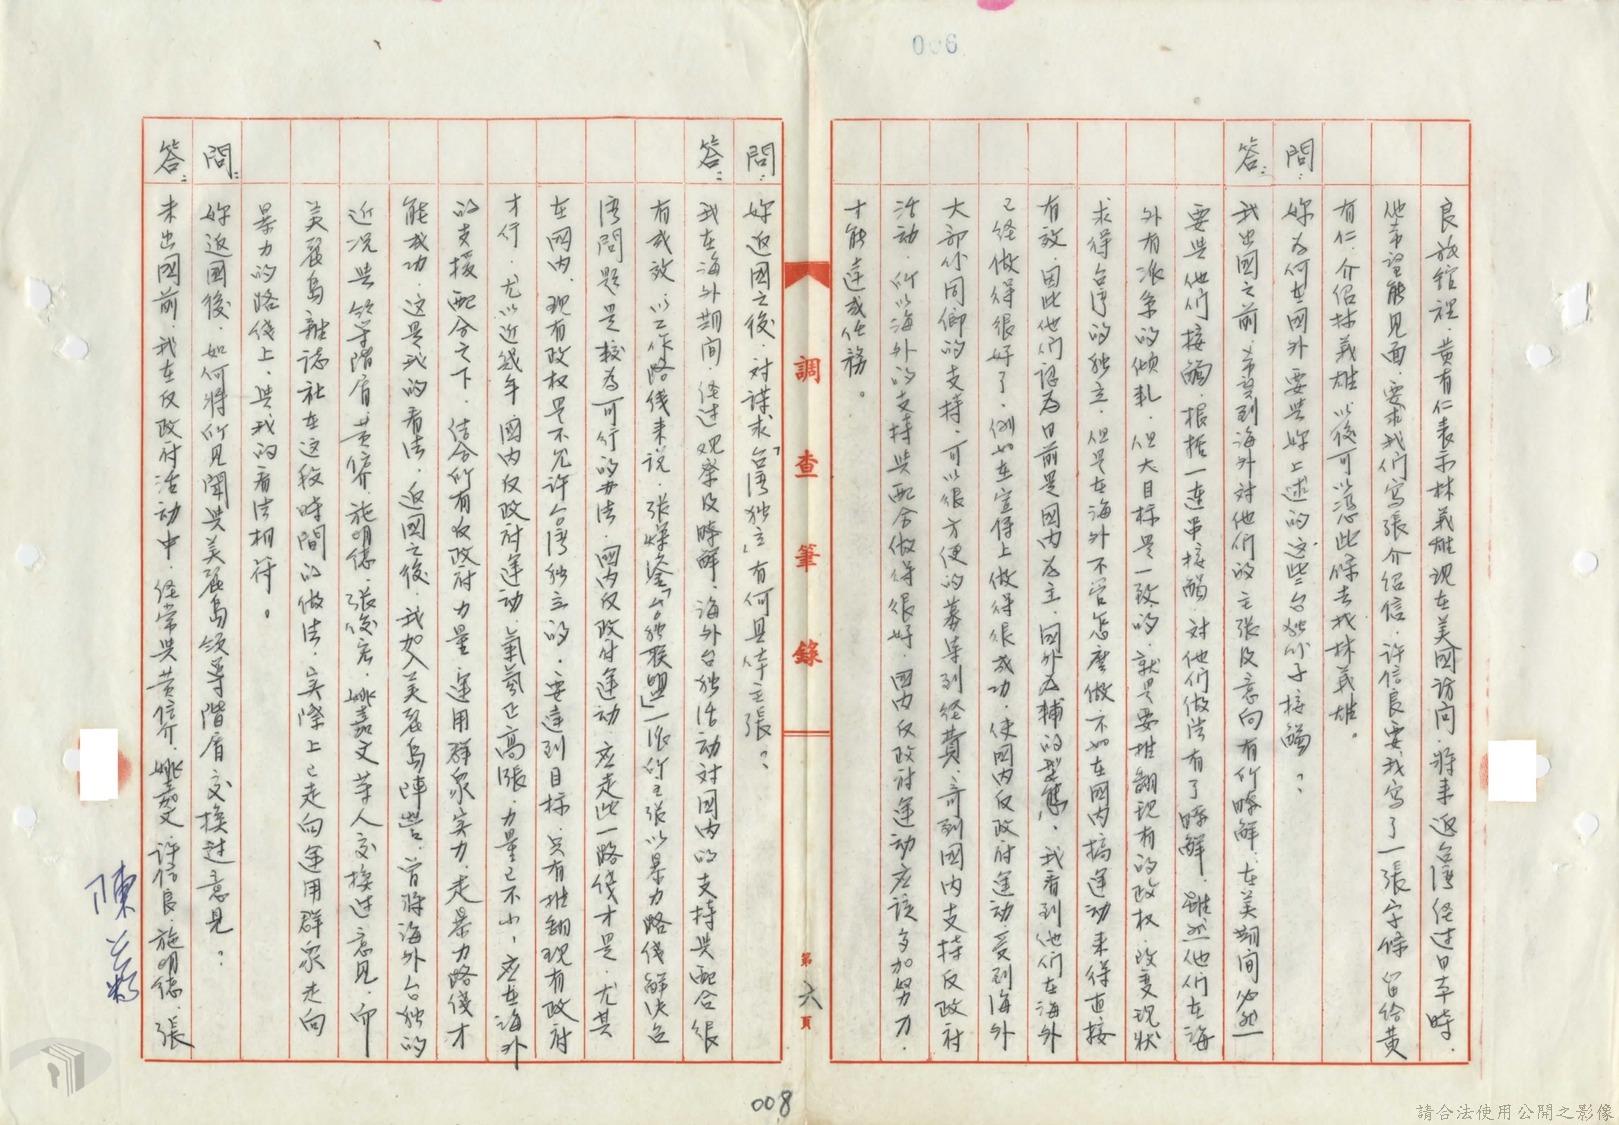 006
良旅館裡，黃有仁表示林義雄現在美國訪問，將來返台灣經過日本時，
他希望能見面，要求我們寫張介紹信，許信良要我寫了一張字條留給黃
有仁、介紹林義雄，以後可以憑此條去找林義雄。
問：妳為何在國外要與妳上述的這些台独份子接觸？
答：我出國之前，希望到海外对他們的主張及意向有所瞭解，在美期間必然
要與他們接觸，根据一連串接觸，对他們做法有了瞭解，雖然他們在海
外有派系的倾軋，但大目标是一致的，就是要推翻現有的政权，改变現狀
求得台湾的独立，但是在海外不管怎麼做不如在國内搞运动來得直接
有效，因此他們認為目前是國内為主，國外為輔的型態，我看到他們在海外
已经做得很好了，例如在宣傳上做得很成功，使國内反政府运动受到海外
大部份同鄉的支持，可以很方便的募集到经費，寄到國内支持反政府
活动，所以海外的支持與配合做得很好，國内反政府运动应該多加努力，
才能達成任務。
調查筆錄
第六頁
問：妳返國之後，对謀求「台湾独立」有何具体主張？
答：我在海外期间，经过观察及瞭解，海外台独活动对國内的支持與配合很
有成效，以工作路线來说，张燦鍙「台独联盟」一派所主张以暴力路线解决台
湾問題是較為可行的办法，國内反政府运动应走此一路线才是，尤其
在國内，現有政权是不允许台湾独立的，要達到目标，只有推翻現有政府
才行，尤以近幾年國内反政府运动氣氛正高漲，力量已不小，应在海外
的支援配合之下，结合所有反政府力量，运用群衆实力，走暴力路线才
能成功，这是我的看法，返國之後，我加入美麗島陣营，曾将海外台独的
近况與領导階層黄信介、施明德、張俊宏、姚嘉文等人交換过意見，而
美麗島雜誌社在这段時間的做法，实際上已走向运用群衆走向
暴力的路线上，與我的看法相符。
問：妳返國後，如何將所見聞與美麗島領导階層交換过意見？
答：未出國前，我在反政府活动中，经常與黄信介、姚嘉文、許信良、施明德、張
陳
008
請合法使用公開之影像